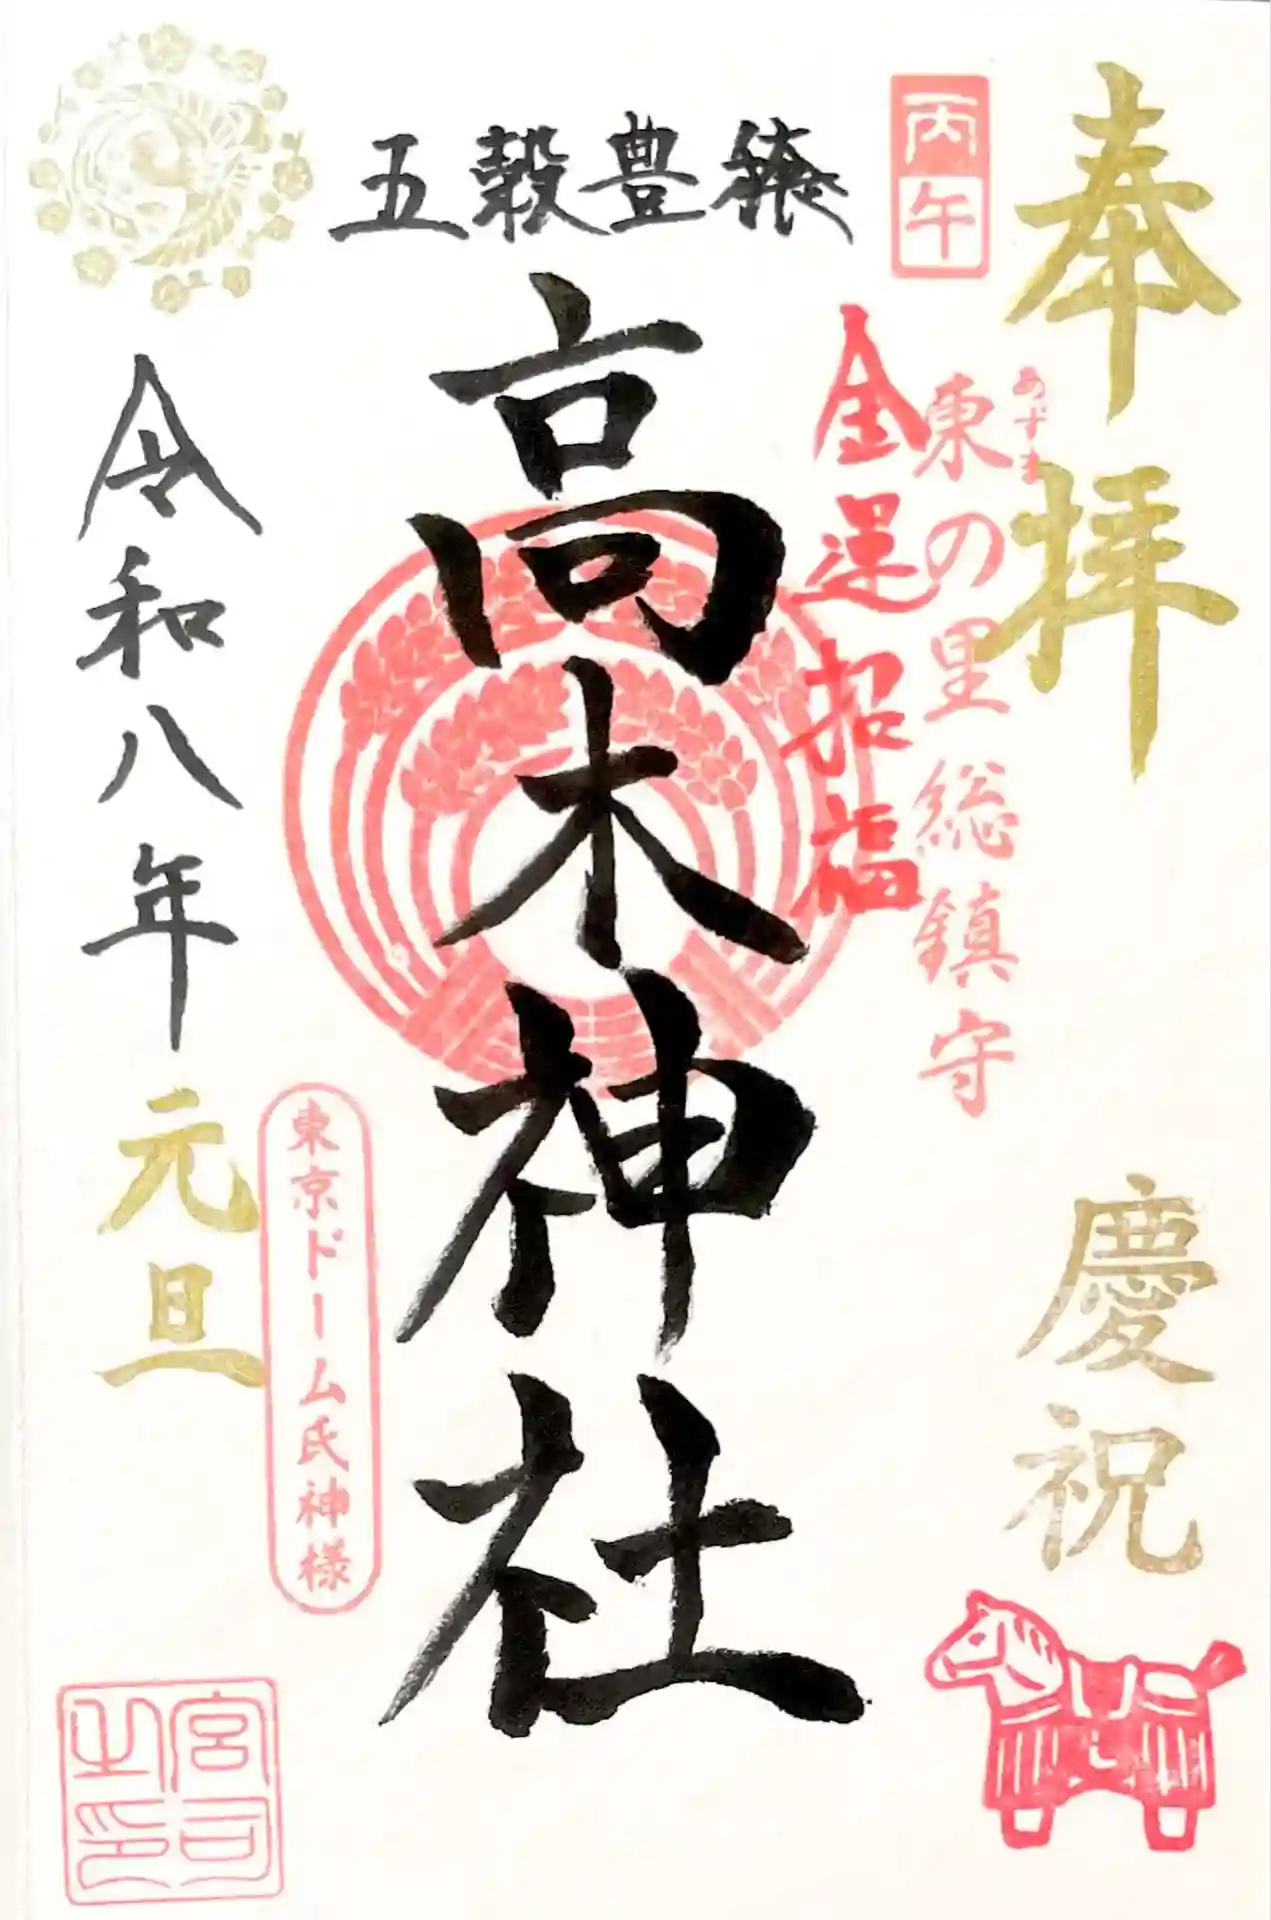 奉拝
慶祝
丙午
あずま
東の里総鎮守
金運招福
五穀豊穣
高木神社
東京ドーム氏神様
令和八年元旦
宮司之印